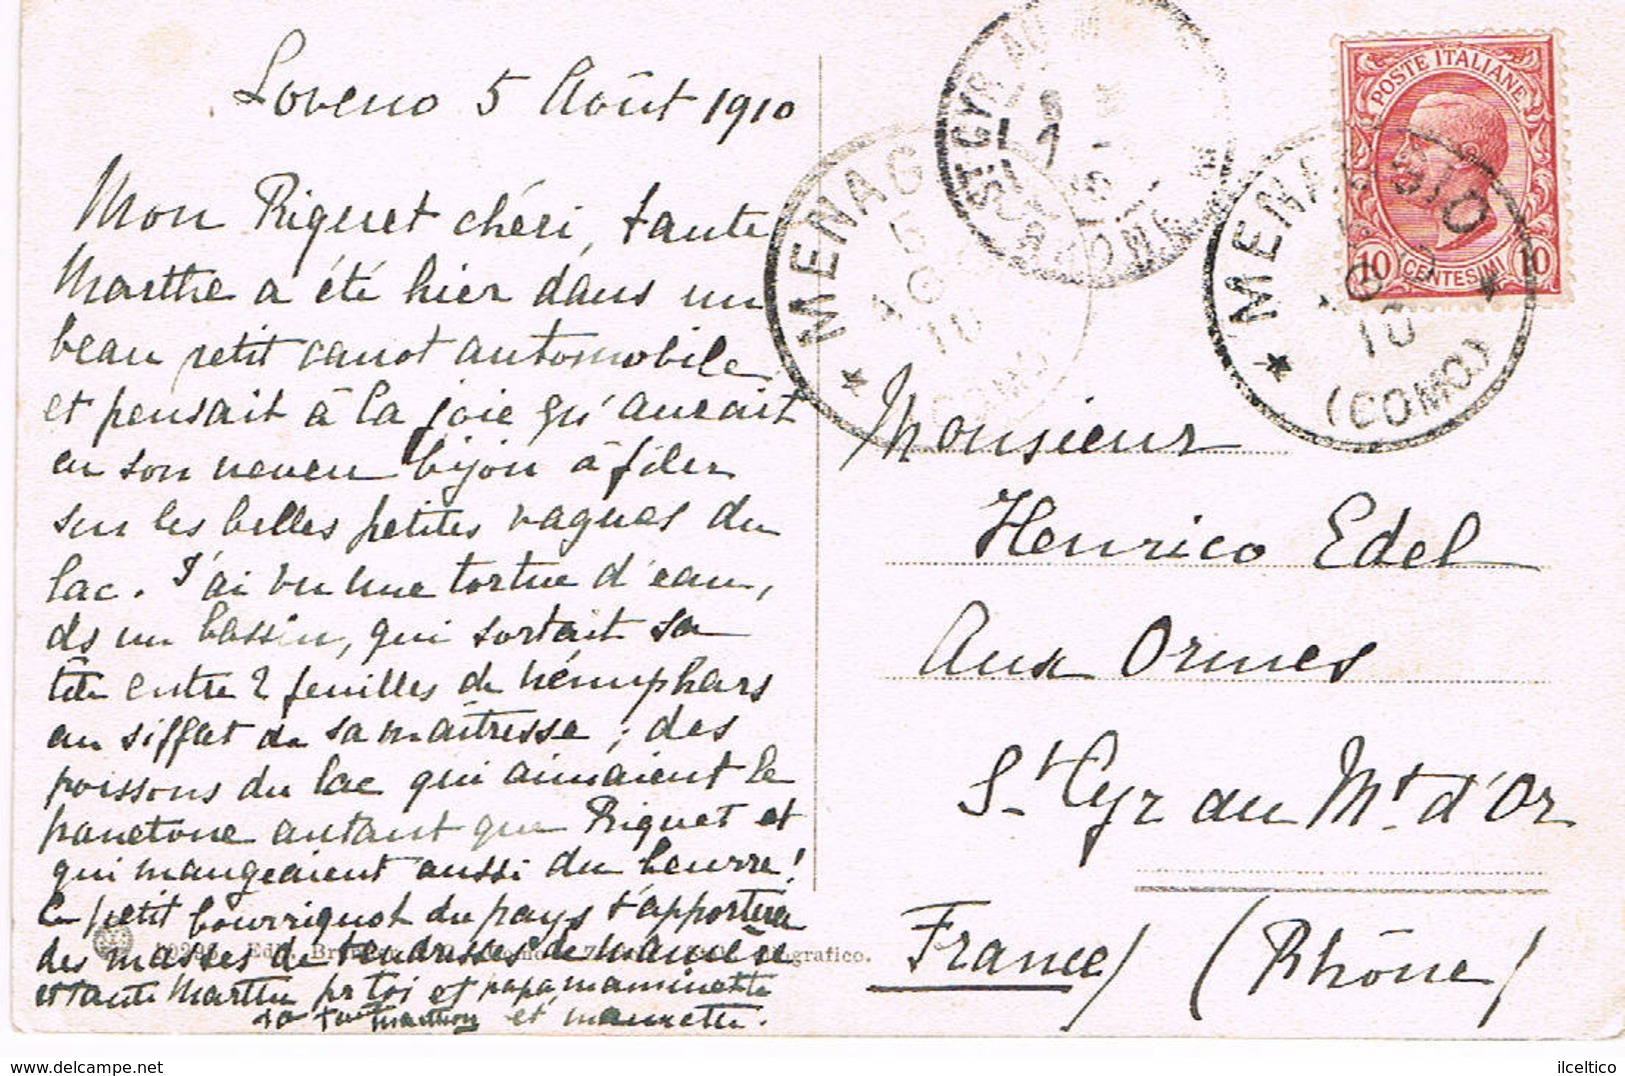 Loveno 5 Août 1910
Mon Riquet chéri, tante
Marthe a été hier dans un
beau petit canot automobile
et pensait à la joie qu'aurait
eu son neveu bijou à filer
sur les belles petites vagues du
lac. J'ai vu une tortue d'eau,
ds un bassin, qui sortait sa
tête entre 2 feuilles de némuphars
au sifflet de sa maîtresse ; des
poissons du lac qui aimaient le
panetone autant que Riquet et
qui mangeaient aussi du beurre!
Ce petit bourriquot du pays t'apportera
des masses de tendresses de
et tante Marthe pr toi et papa maminette
et maurette.
Monsieur
Henrico Edel
Aux Ormes
St Cyr au Mt d'Or
France / (Rhône)
POSTE ITALIANE
10 CENTESIMI 10
MENAGGIO
10
(COMO)
MENAG
5
10
ST CYR AU M
RHONE
ografico.
ilceltico
delcampe.net